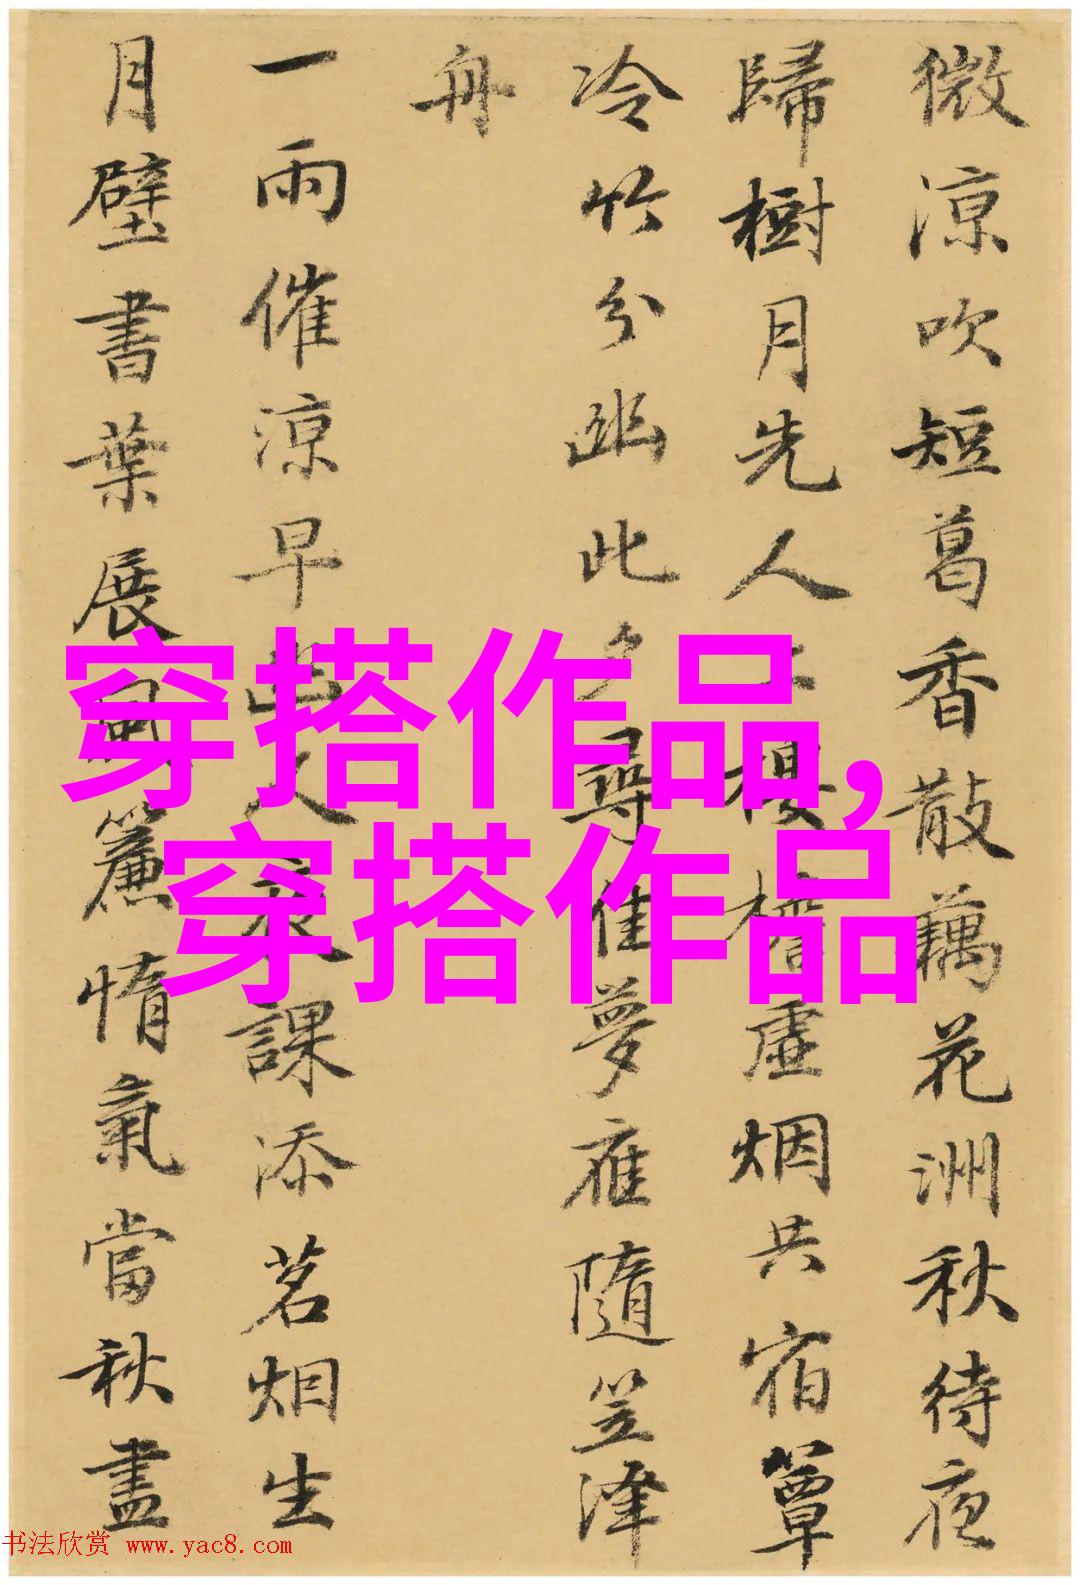 微涼吹短葛香散藕花洲秋待夜
歸樹月先人上樓檣虛烟共宿簟
冷竹分幽此夕尋佳夢雁隨笠澤
舟
一雨催涼早幽人夜課添茗烟生
月壁書葉展風簾惰氣當秋盡
穿搭作品,
穿搭作品
书法欣赏 www.yac8.com